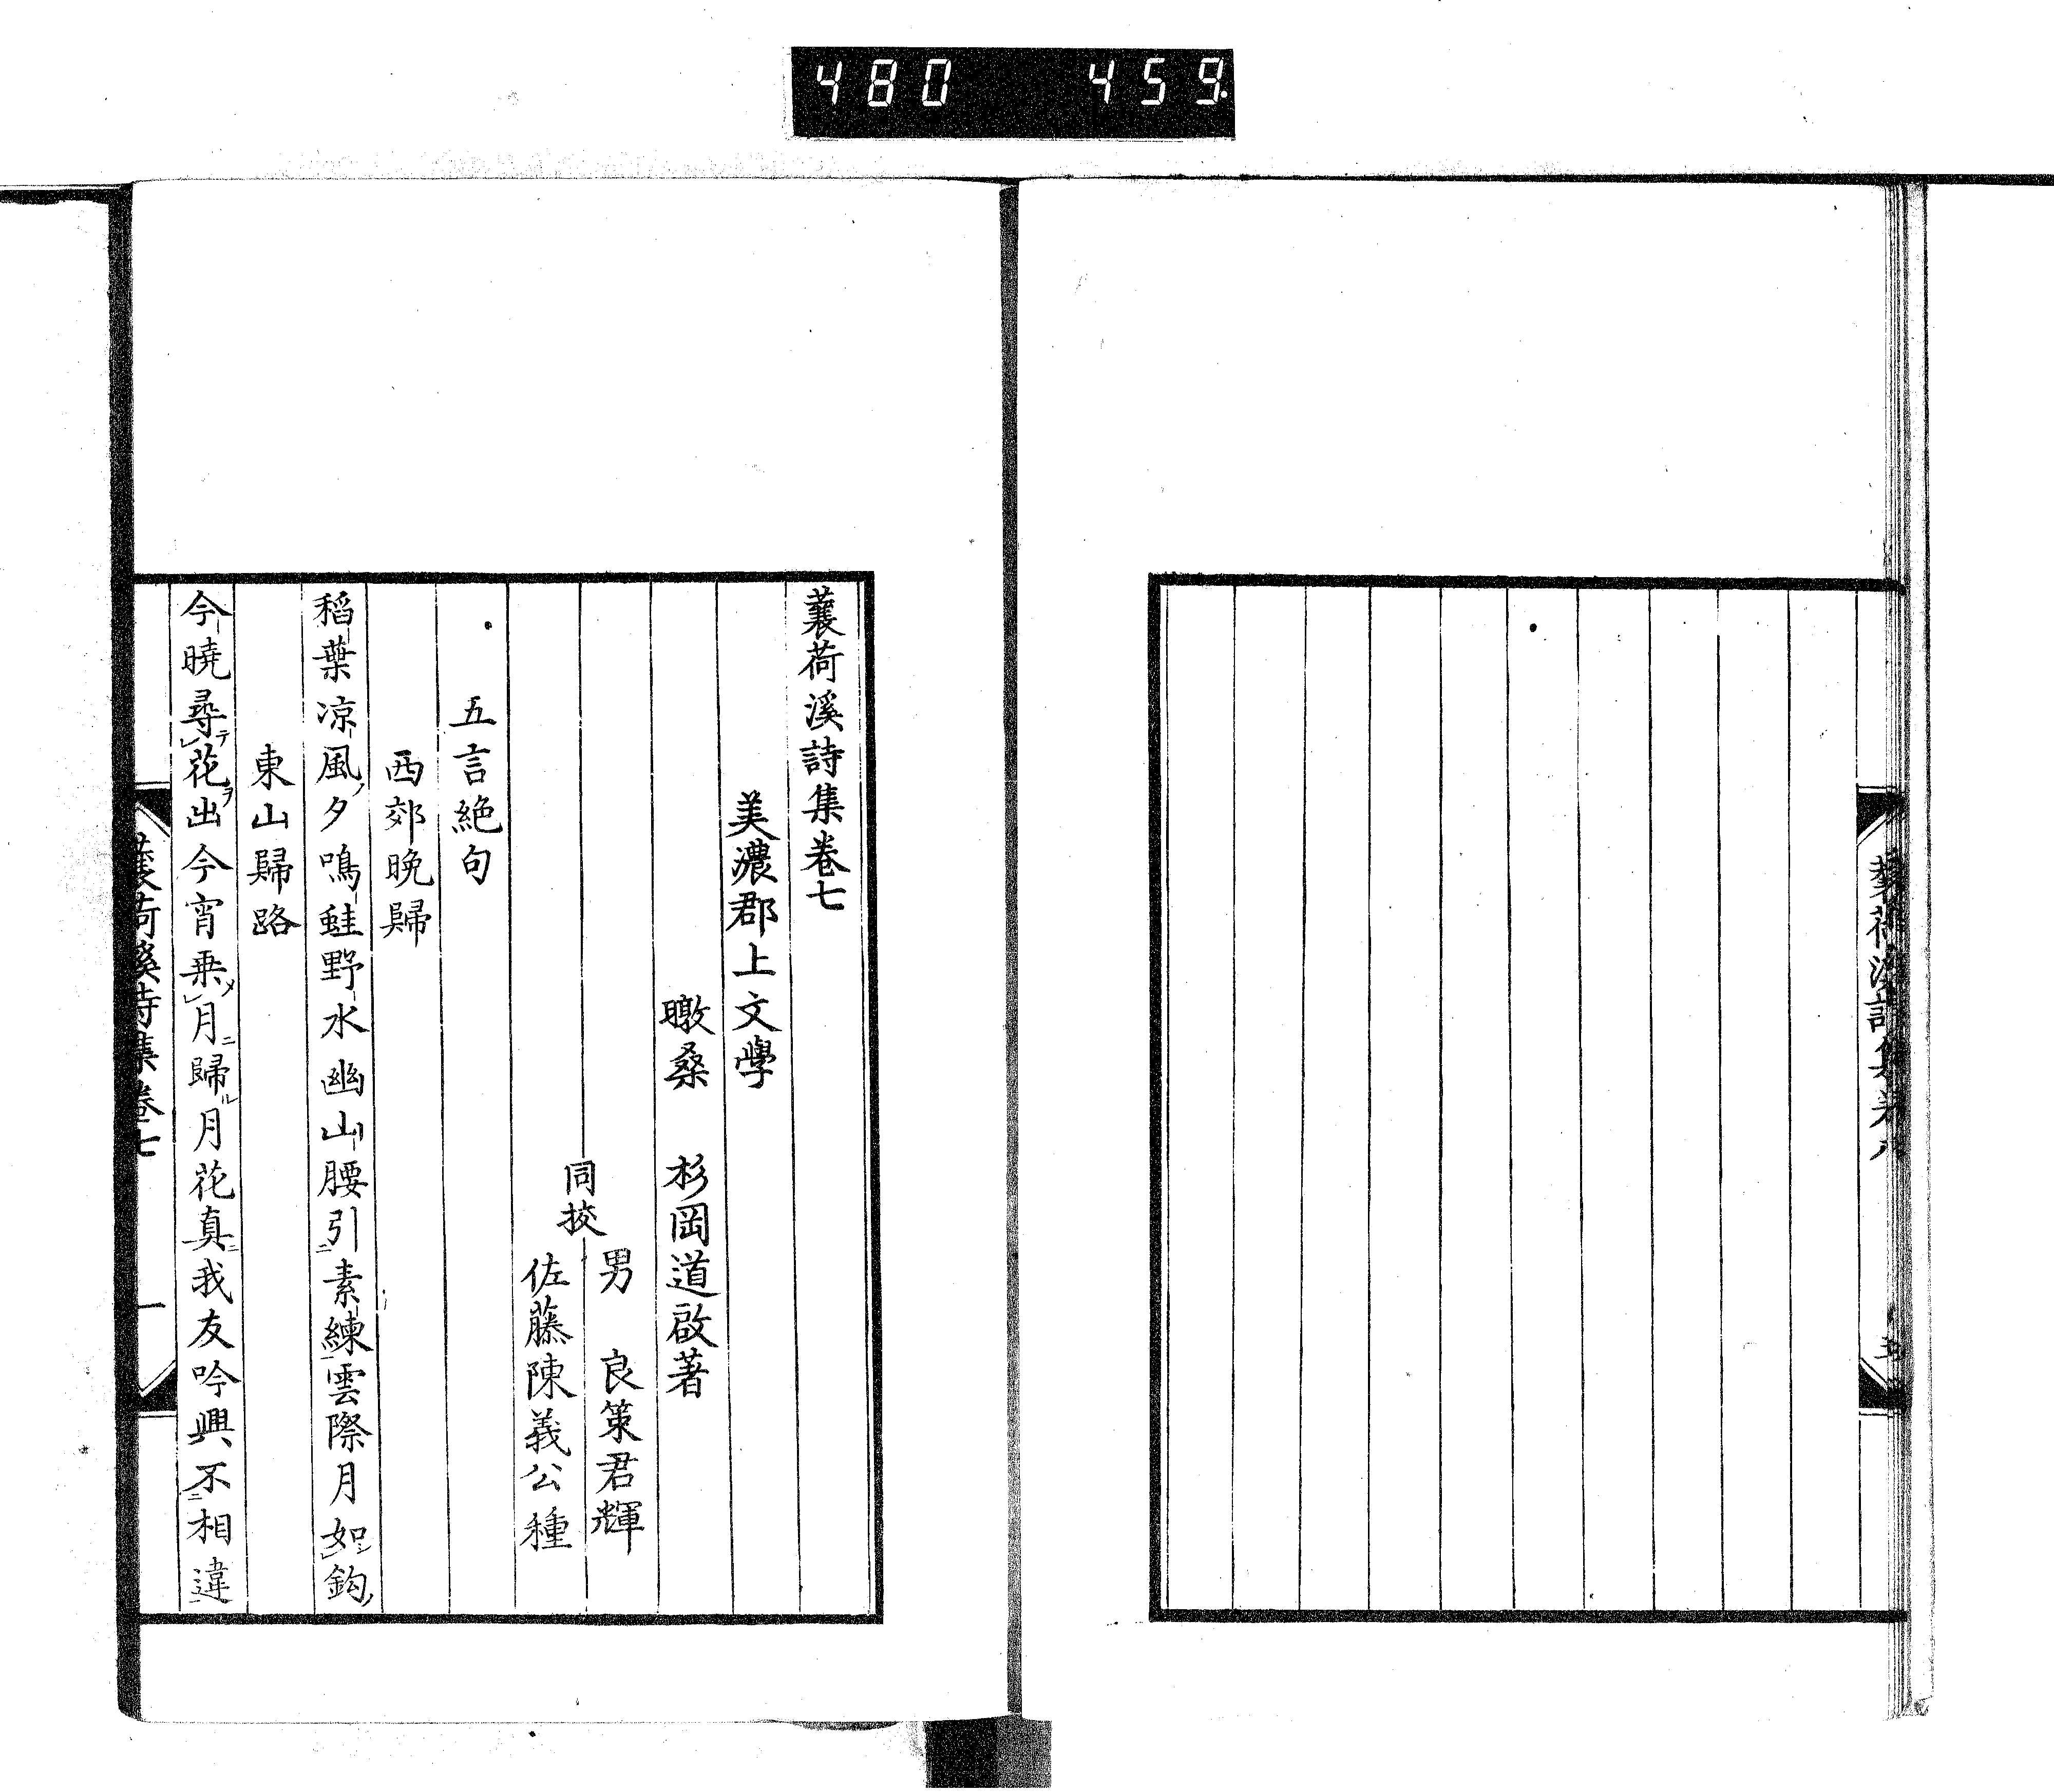 480 459
蘘荷溪詩集卷七
美濃郡上文學
暾桑 杉岡道啟著
同挍
男 良策君輝
佐藤陳義公種
五言絶句
西郊晩歸
稻葉凉風ノ夕鳴蛙野水幽山腰引ニ素練雲際月如シ鈎ノ
東山歸路
今曉尋テ花ヲ出今宵乗メ月ニ歸ル月花真ニ我友吟興不ニ相違
蘘荷溪詩集卷七
一